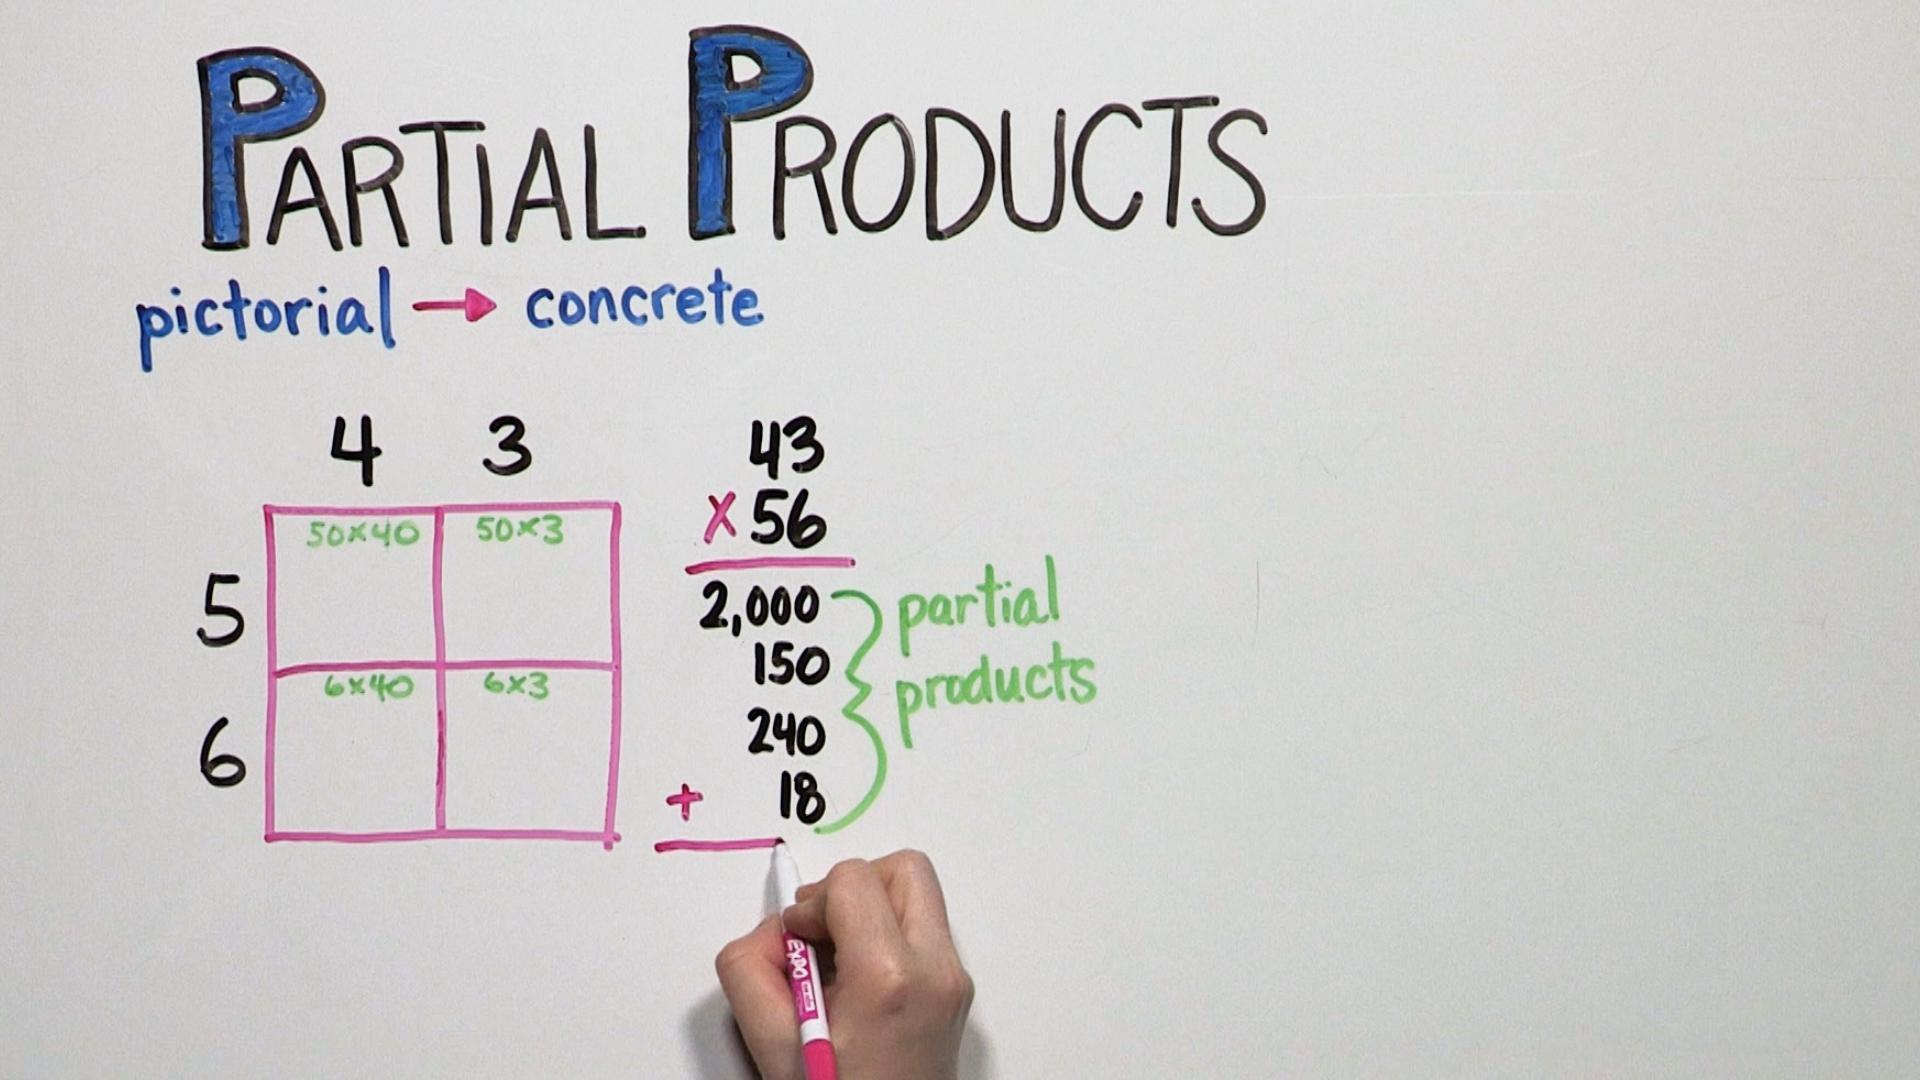 PARTIAL PRODUCTS
pictorial → concrete
4 3
50×40 50×3
5
6×40 6×3
6
43
× 56
2,000
150
240
+ 18
partial
products
EXPO